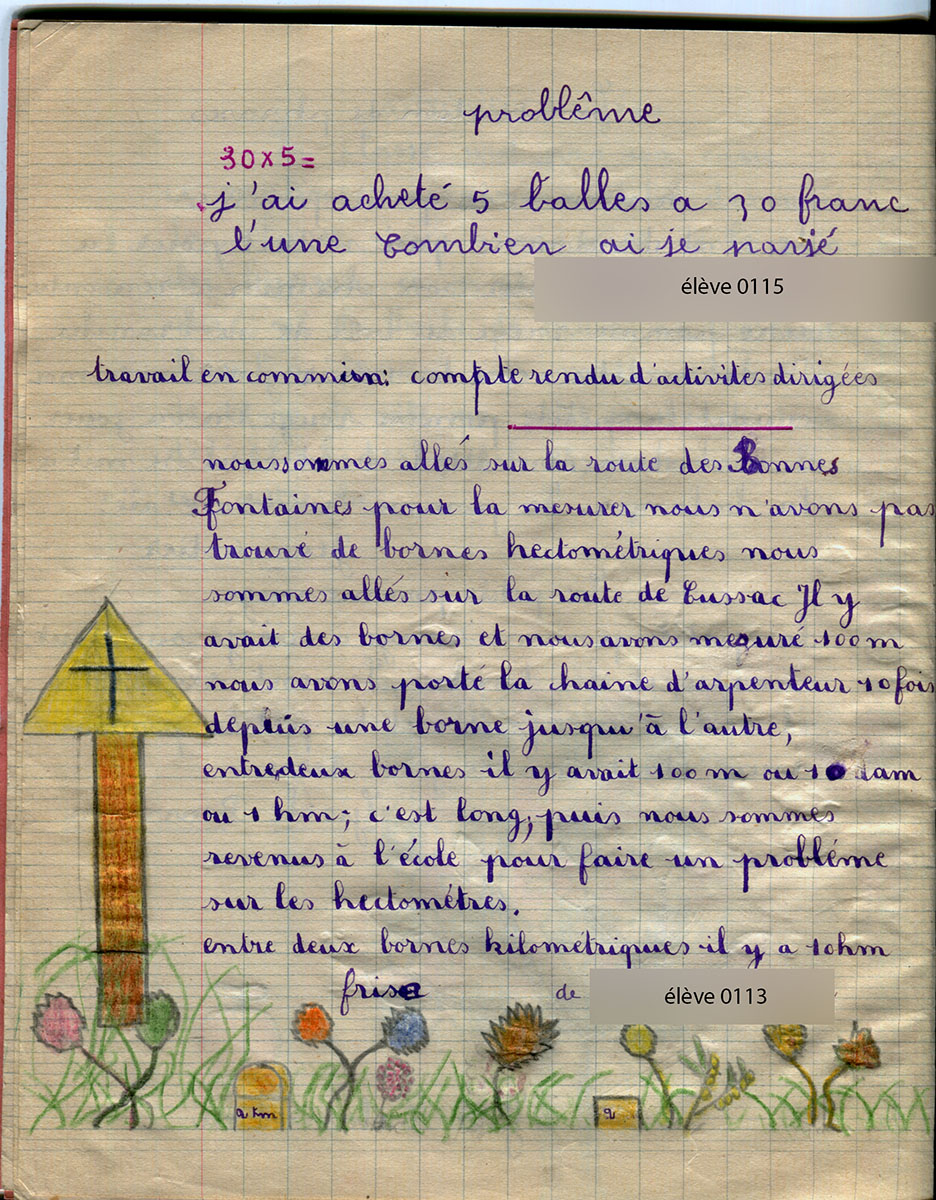 problême
30x5=
j'ai acheté 5 balles a 30 franc
l'une combien ai je parjé
élève 0115
travail en commun: compte rendu d'activites dirigées
noussommes allés sur la route des Bonnes
Fontaines pour la mesurer nous n'avons pas
trouvé de bornes hectométriques nous
sommes allés sur la route de Lussac Il y
avait des bornes et nousavons mesuré 100 m
nous avons porté la chaine d'arpenteur 10 fois
depuis une borne jusqu'à l'autre,
entre deux bornes il y avait 100 m ou 10 dam
ou 1 hm; c'est long, puis nous sommes
revenus à l'école pour faire un probléme
sur les hectométres.
entre deux bornes kilométriques il y a 10hm
frise de élève 0113
km